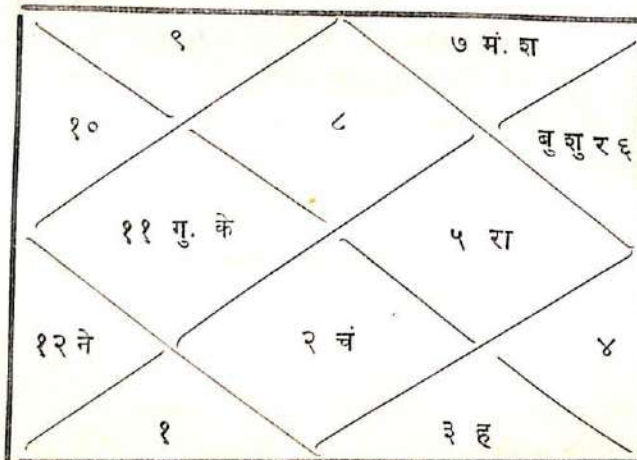 ९
७ मं. श
१०
८
बु शु र ६
११ गु. के
५ रा
१२ ने
२ चं
४
१
३ ह